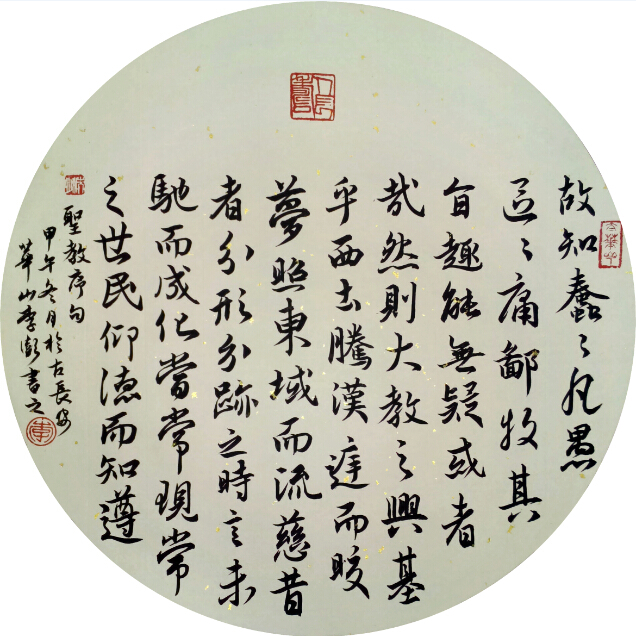 故知蠢〻凡愚
區〻庸鄙投其
旨趣能無疑或者
哉然則大教之興基
乎西土騰漢庭而皎
夢照東域而流慈昔
者分形分跡之時言未
馳而成化當常現常
之世民仰德而知遵
聖教序句
甲午冬月於古長安
華山李澎書之